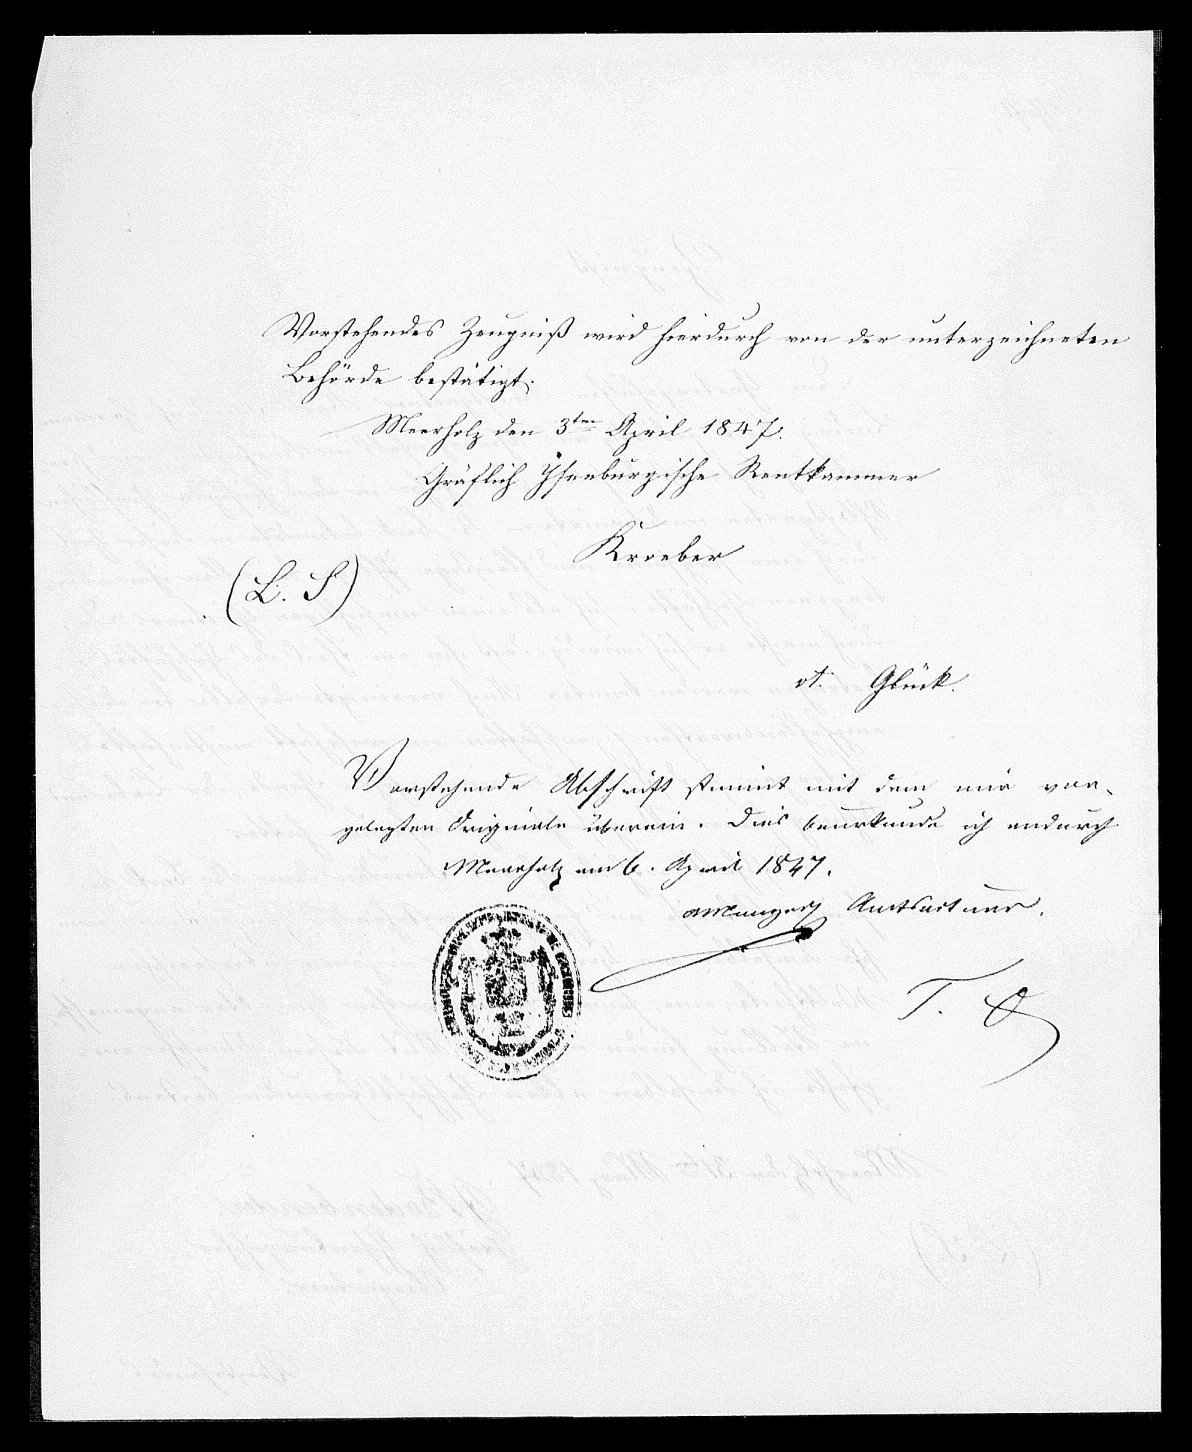 Vorstehendes Zeugniß wird hierdurch von der unterzeichneten
Behörde bestätigt.
Meerholz den 3ten April 1847.
Gräflich Ysenburgische Rentkammer
Kroeber
(L. S)
vt. Glück.
Vorstehende Abschrift stimmt mit dem mir vor-
gelegten Originale überein. Dies beurkunde ich andurch
Meerholz am 6. April 1847.
Amtsactuar.